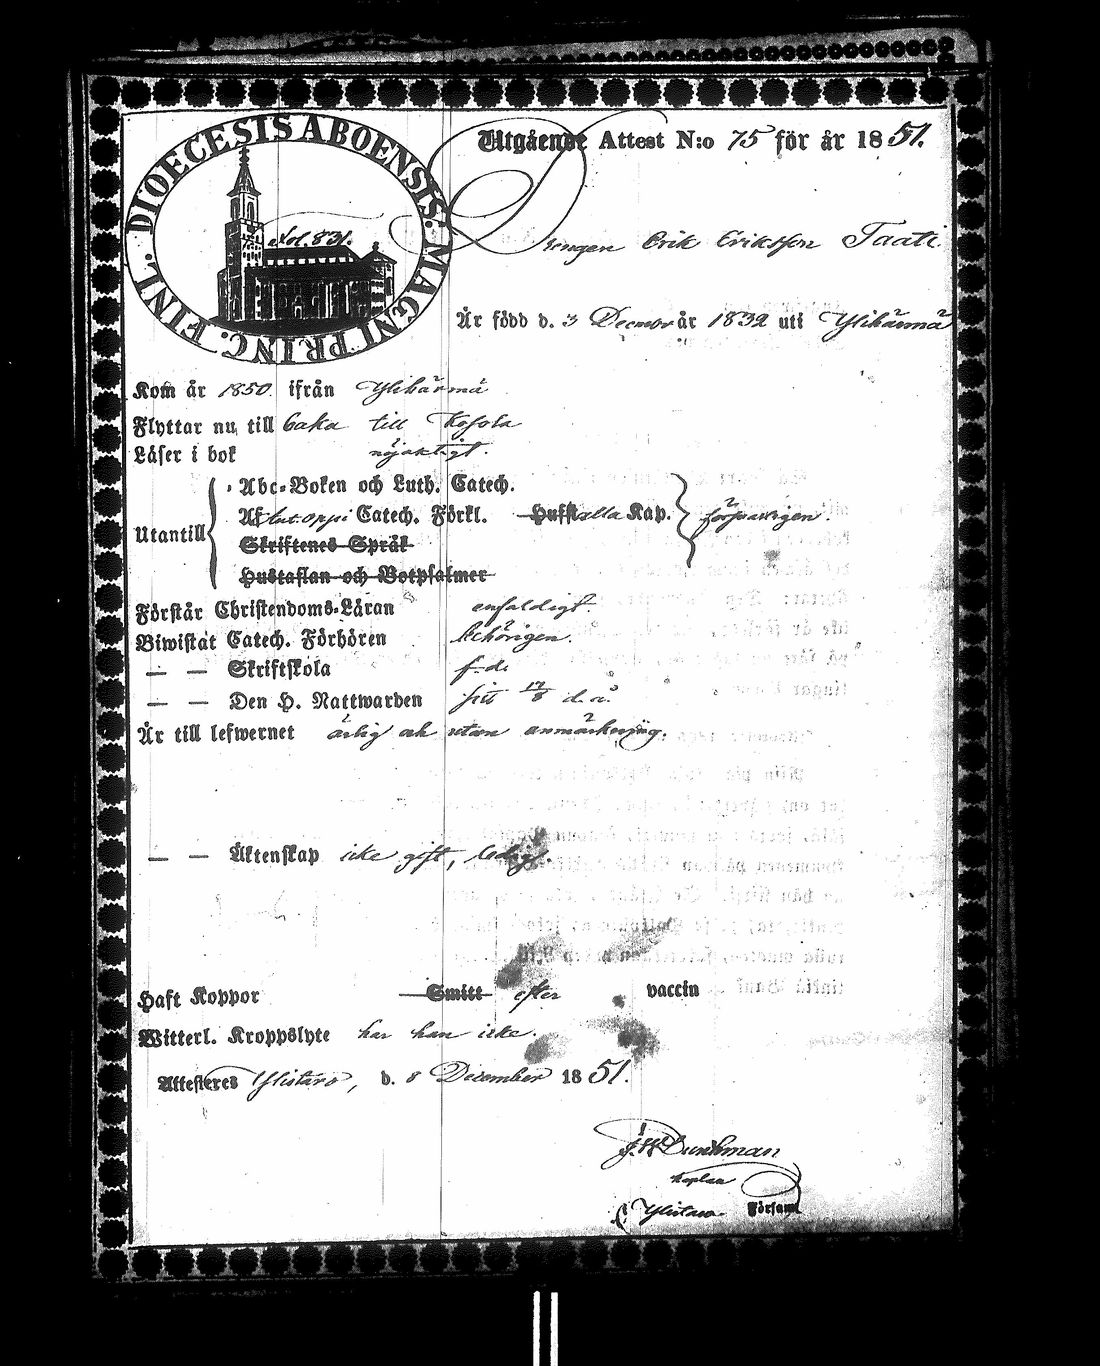 DIOECESIS ABOENSIS. MAGNI PRINC. FINL.
Fol. 831.
Utgående Attest N:o 75 för år 1851.
Drengen Erik Eriksson Taati
Är född d. 3 Decembr år 1832 uti Ylihärmä
Kom år 1850 ifrån Ylihärmä
Flyttar nu till baka till Kosola
Läser i bok nöjaktigt.
Utantill
Abc-Boken och Luth. Catech.
Catech. Förkl. alla Kap. försvarligen.
Skriftenes Språk
Hustaflan och Botpsalmer
Förstår Christendoms-Läran enfaldigt.
Biwistat Catech. Förhören behörigen.
— — Skriftskola f. d.
— — Den H. Nattwarden sist 17/8 d. å.
Är till lefwernet ärlig och utan anmärkning.
— — Äktenskap icke gift, ledig
Haft Koppor Smitt efter vaccin
Witterl. Kroppslyte har han icke.
Attesteres Ylistaro, d. 8 December 1851.
kaplan
Ylistaro Församl.